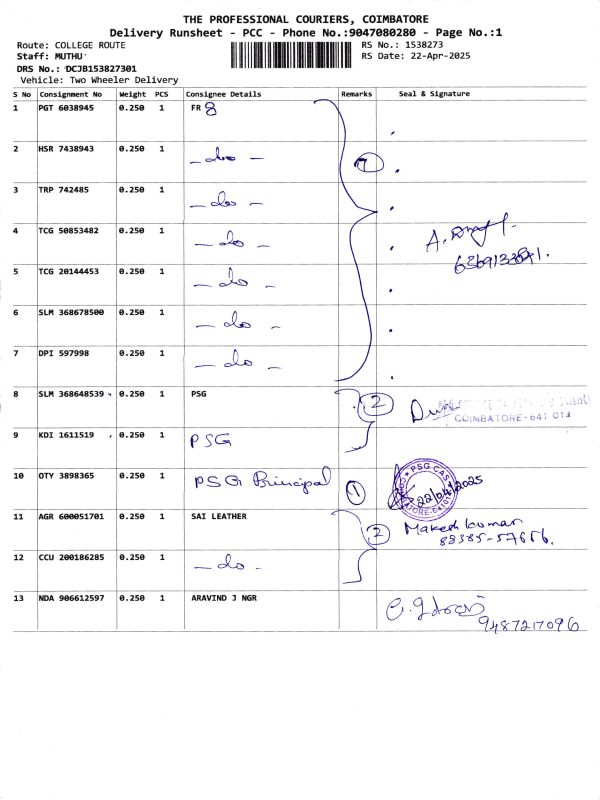 THE PROFESSIONAL COURIERS, COIMBATORE
Delivery Runsheet - PCC - Phone No.:9047080280 - Page No.:1
Route: COLLEGE ROUTE RS No.: 1538273
Staff: MUTHU RS Date: 22-Apr-2025
DRS No.: DCJB153827301
Vehicle: Two Wheeler Delivery
S No Consignment No Weight PCS Consignee Details Remarks Seal & Signature
1 PGT 6038945 0.250 1 FR 8
2 HSR 7438943 0.250 1 - do - 7
3 TRP 742485 0.250 1 - do -
4 TCG 50853482 0.250 1 - do - A.
5 TCG 20144453 0.250 1 - do -
6 SLM 368678500 0.250 1 - do -
7 DPI 597998 0.250 1 - do -
8 SLM 368648539 0.250 1 PSG 2
COIMBATORE-641 014
9 KDI 1611519 0.250 1 PSG
10 OTY 3898365 0.250 1 PSG Principal 1 PSG CAS 22/04/2025
11 AGR 600051701 0.250 1 SAI LEATHER 2 Makesh kumar
88385-57656.
12 CCU 200186285 0.250 1 - do -
13 NDA 906612597 0.250 1 ARAVIND J NGR
9487217096